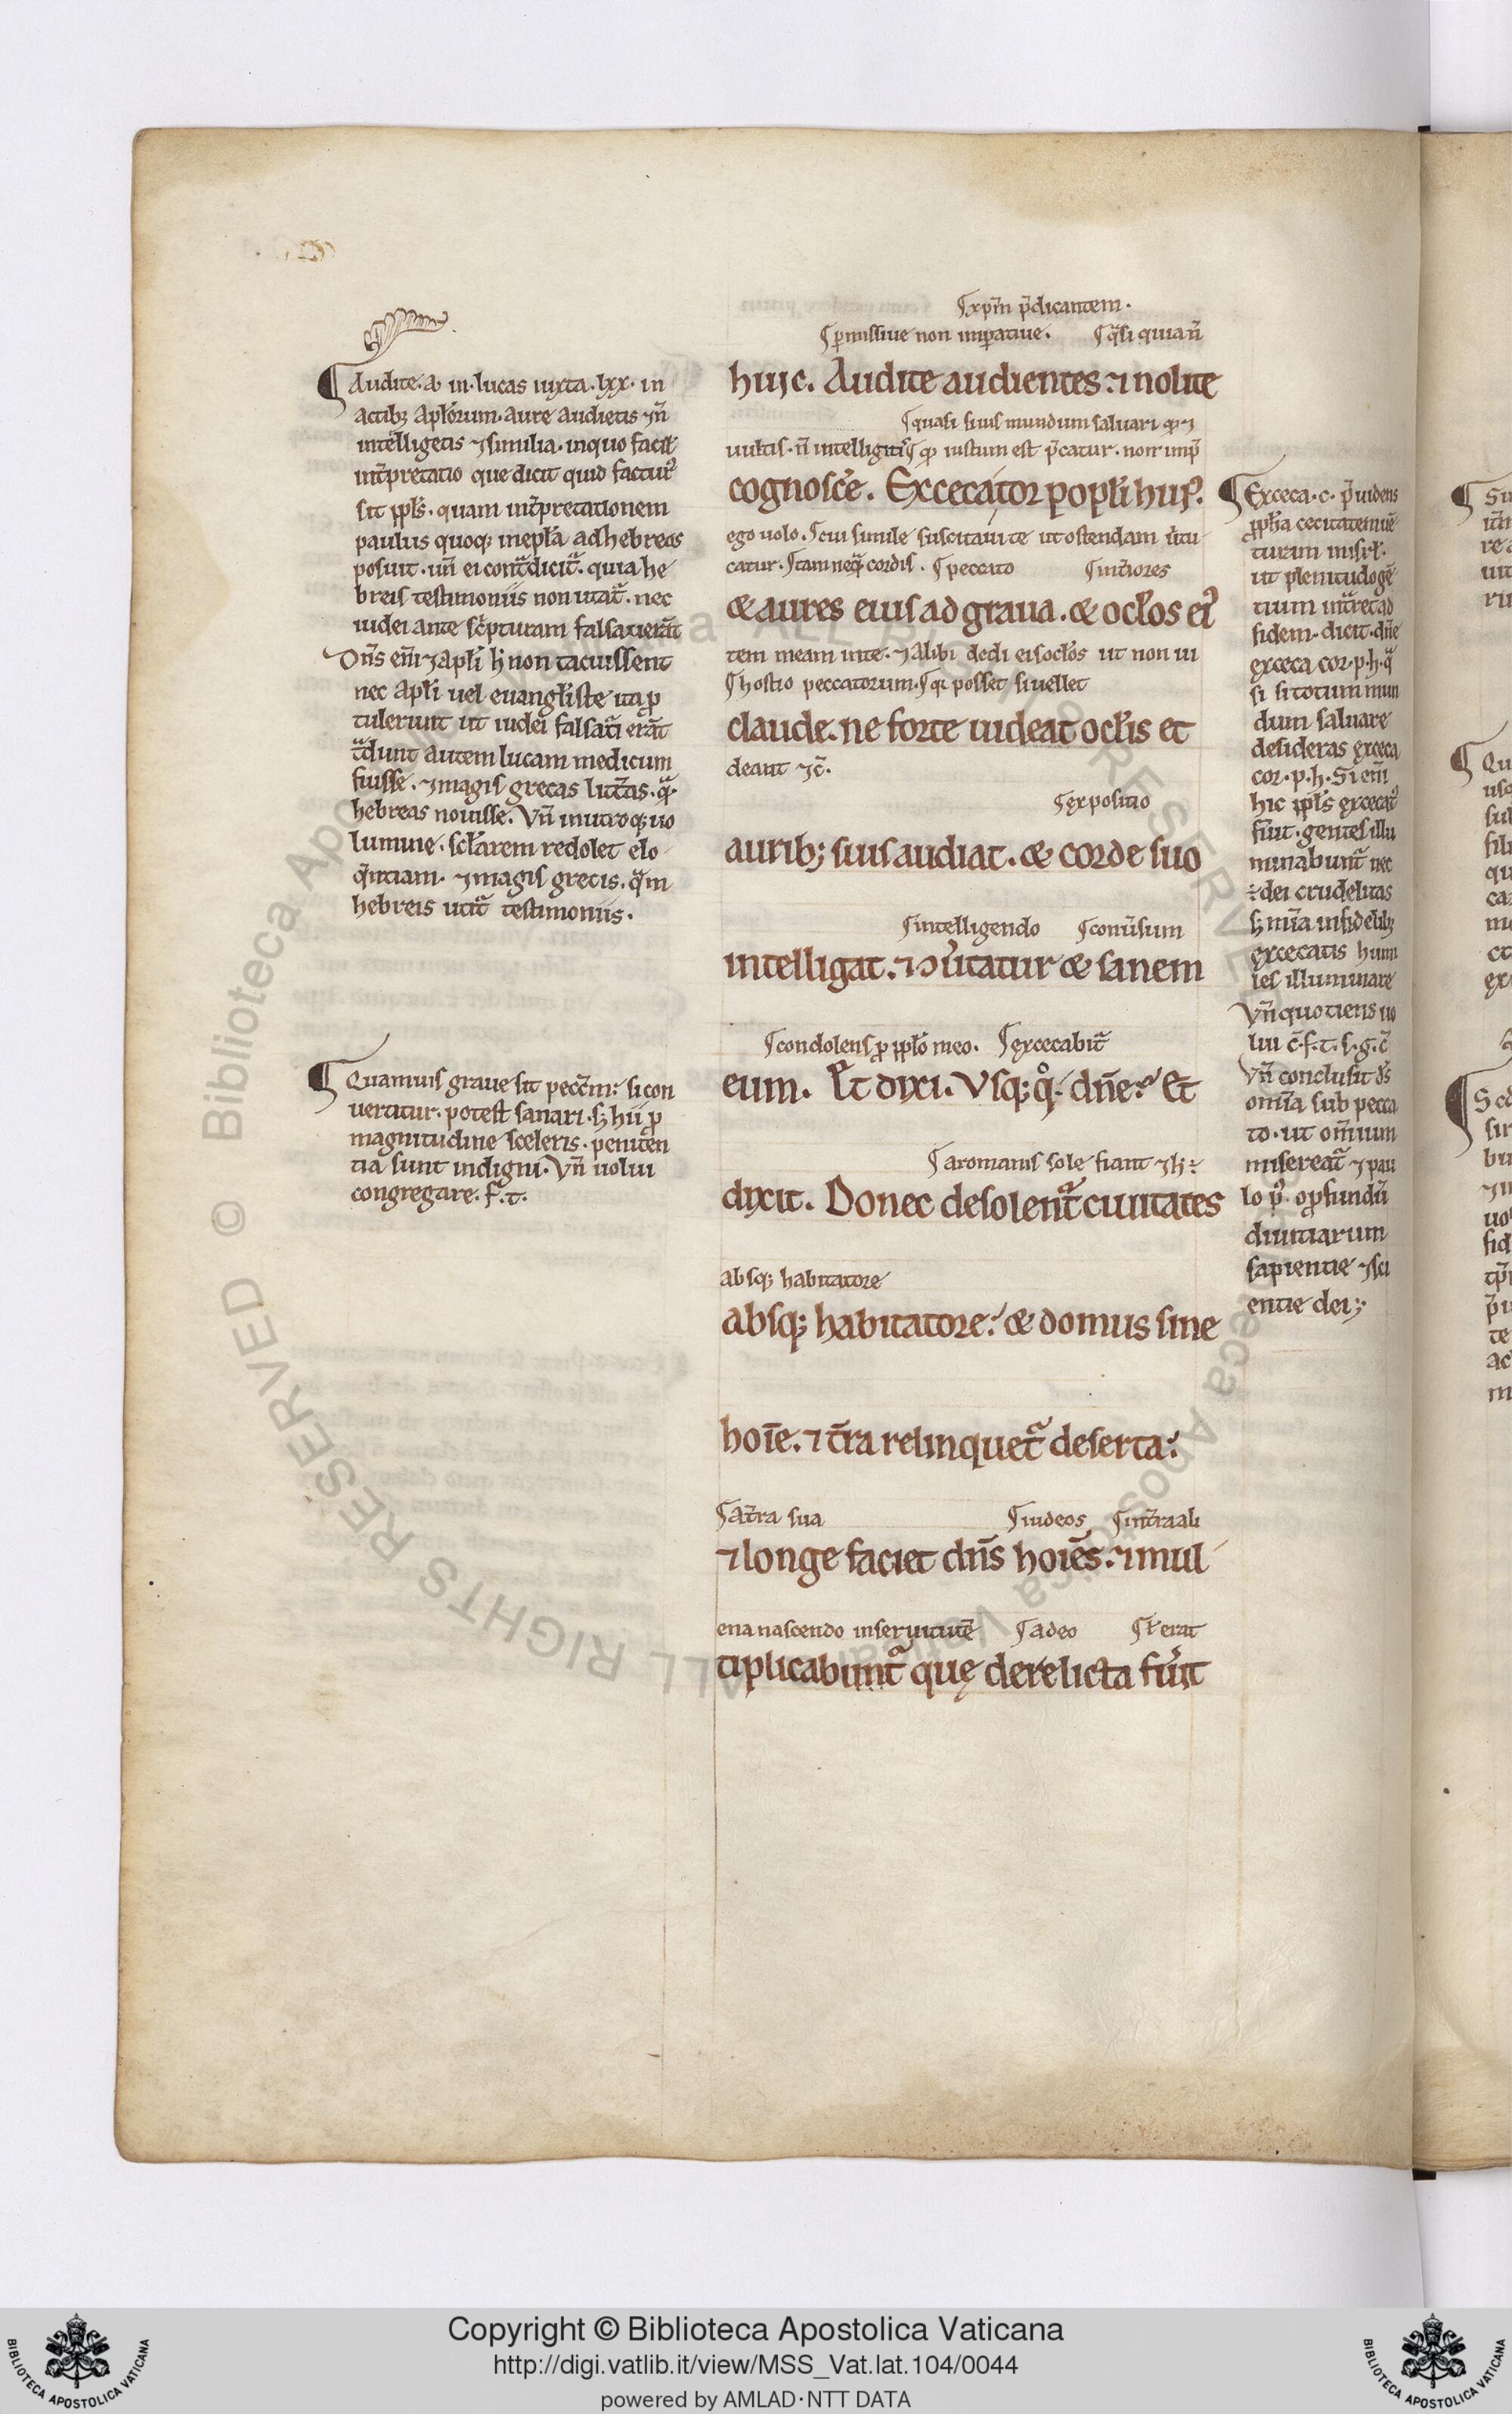 ¶ Audite. a. in. lucas iuxta. lxx. in
actib; apl̃orum. aure audietis ⁊ñ
intelligetis ⁊similia. inquo facil̃
int̃pretatio que dicit quid factur᷒
sit ppl̃s. quam int̃pretationem
paulus quoq; inepl̃a adhebreos
posuit. uñ ei contͣdicit᷑. quia he
breis testimoniis non utat᷑. nec
iudei ante sc̃pturam falsauerãt
Dñs em̃ ⁊apl̃i h̃ non tacuissent
nec apl̃i uel euangl̃iste ita ꝓ
tulerunt ut iudei falsati erãt
tͣdunt autem lucam medicum
fuisse. ⁊magis grecas litt̃as. qͣ
hebreas nouisse. Vñ inutroq; uo
lumine. scl̃arem redolet elo
qntiam. ⁊magis grecis. qͣm
hebreis utit᷑ testimoniis.
¶ Quamuis graue sit pecc̃m: si con
uertitur. potest sanari. s; hii ꝓ
magnitudine sceleris. peniten
tia sunt indigni. Vñ uolui
congregare. f. t.
¶xpm̃ p̃dicantem.
¶ꝑmissiue non imꝑatiue. ¶qͣsi quia ñ
huic. Audite audientes: ⁊ nolite
¶quasi siuis mundum saluari
uultis. ñ intelligitis iustum est p̃catur. non
cognosce̾. Excecator popl̃i hui᷒.
ego uolo. ¶cui simile suscitaui te ut ostendam
catur. ¶tam neqͣ cordis. ¶peccato ¶int̃iores
& aures eius ad graua. & ocl̃os ei᷒
tem meam inte. ⁊alibi dedi eis ocl̃os ut non ui
¶hostio peccatorum. ¶ posset si uellet
claude. ne forte uideat ocl̃is et
deant ⁊c̃.
¶expositio
aurib; suis audiat. & corde suo
¶intelligendo ¶conũsum
intelligat. ⁊ ↄũtatur & sanem
¶condolens ꝓ ppl̃o meo. ¶excecabit᷑
eum. Et dixi. Vsq; qͦ. dñe? Et
¶aromanis sole fiant ⁊
dixit. Donec desolent᷑ ciuitates
absq; habitatore
absq; habitatore: & domus sine
hoĩe. ⁊ t̃ra relinquet᷑ deserta:
¶At̃ra sua ¶iudeos ¶int̃raali
⁊ longe faciet dñs hoiẽs. ⁊ mul
ena nascendo inseruitutẽ ¶adeo erat
tiplicabunt᷑ quę derelicta fũit
¶ Exceca. c. p̃uidens
ppħa cecitatem uẽ
turam misrl̃.
ut plenitudo gẽ
tium int̃ret ad
fidem. dicit. dñe
exceca cor. p. h. qͣ
si si totum mun
dum saluare
desideras exceca
cor. p. h. Si em̃
hic ppl̃s excecat᷒
fũit. gentes illu
minabunt᷑ nec
÷ dei crudelitas
s; mĩa infidelib;
excecatis hum
les illuminare
Vñ quotiens uo
lui c̃. f. t. s. g. c̃
Vñ conclusit ds̃
omĩa sub pecca
to. ut om̃ium
misereat᷑ ⁊ pau
lo p᷒. o ꝓfundũ
diuitiarum
sapientie ⁊sci
entie dei;
Copyright © Biblioteca Apostolica Vaticana
http://digi.vatlib.it/view/MSS_Vat.lat.104/0044
powered by AMLAD·NTT DATA
BIBLIOTECA APOSTOLICA VATICANA
BIBLIOTECA APOSTOLICA VATICANA